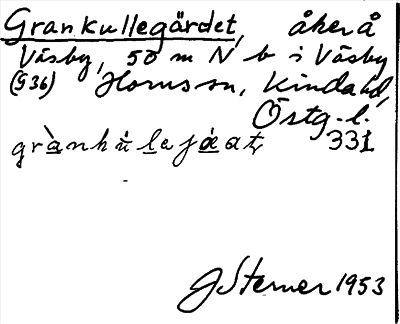 Grankullegärdet, åker å
Väsby, 50 m N b i Väsby
(936) Horns sn, Kinda hd,
Östg. l.
331
J Sterner 1953